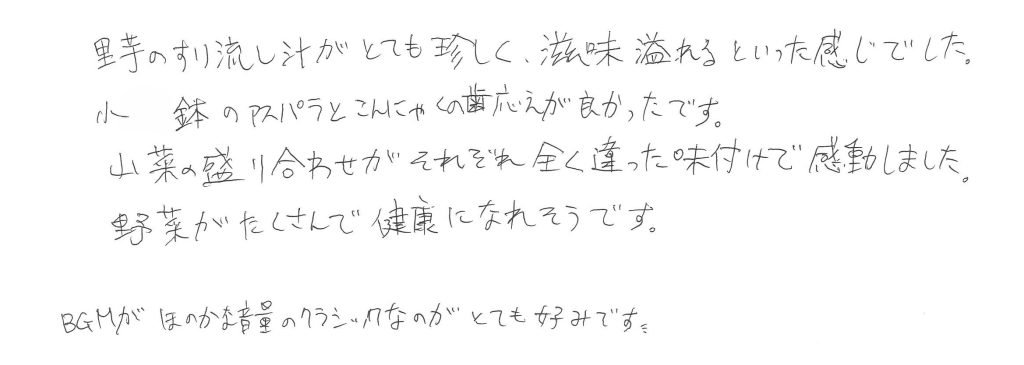 里芋のすり流し汁がとても珍しく、滋味溢れるといった感じでした。
小　鉢のアスパラとこんにゃくの歯応えが良かったです。
山菜の盛り合わせがそれぞれ全く違った味付けで感動しました。
野菜がたくさんで健康になれそうです。
BGMがほのかな音量のクラシックなのがとても好みです。